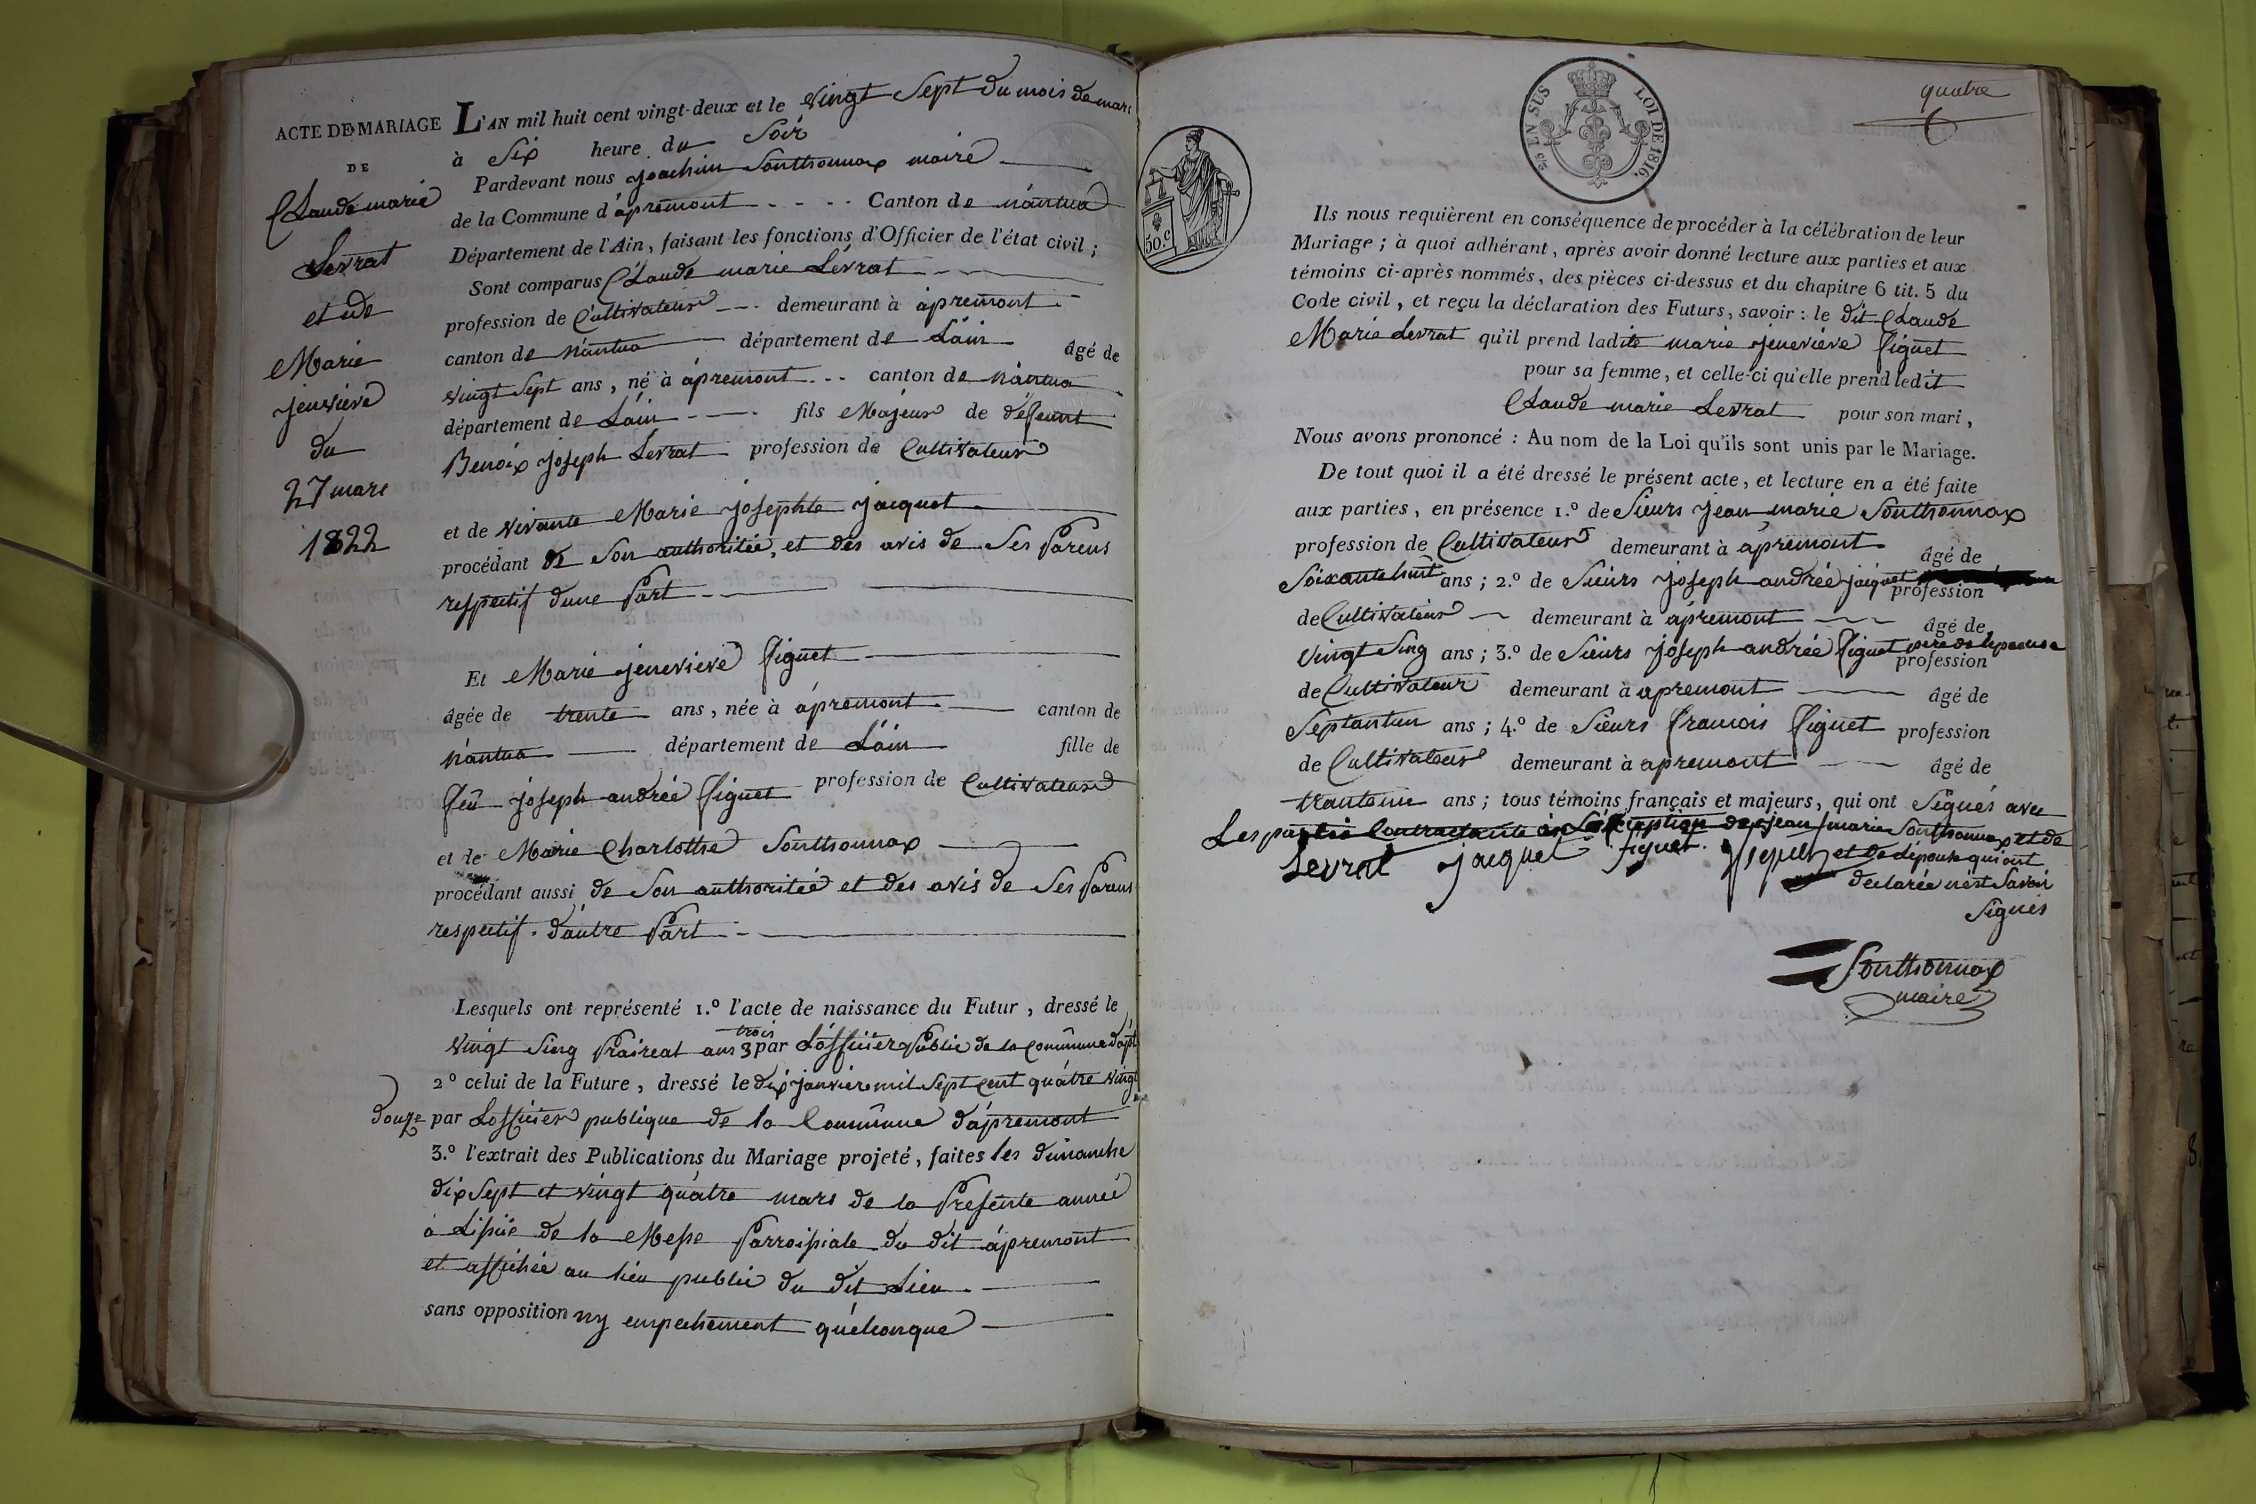 ACTE DE MARIAGE
DE
Claude marie
Levrat
et de
Marie
jenevieve
du
27 mars
1822
L'AN mil huit cent vingt-deux et le vingt Sept du mois de mars
à Six heure du Soir
Pardevant nous joachim Sonthonnax maire
de la Commune d'apremont Canton de nantua
Département de l'Ain, faisant les fonctions d'Officier de l'état civil ;
Sont comparus Claude marie Levrat
profession de Cultivateur demeurant à apremont
canton de Nantua département de Láin âgé de
vingt Sept ans, né à ápremont canton de nántua
département de Láin fils Majeur de défeunt
Benoix joseph Levrat profession de Cultivateur
et de vivante Marie josephte jacquet
procédant de Son authoritée, et des avis de Ses Parens
respectif dune Part
Et Marie jenevieve figuet
âgée de trente ans, née à ápremont canton de
nántua département de Láin fille de
feû joseph andrée figuet profession de Cultivateur
et de Marie Charlotthe Sonthonnax
procédant aussi de Son authoritée et des avis de Ses Parens
respectif. dáutre Part
Lesquels ont représenté 1.º l'acte de naissance du Futur, dressé le
trois
vingt Sing Praireal ans 3 par Lófficier Public de la Commune dáp
2º celui de la Future, dressé le dix janvier mil Sept Cent quátre vingt
douze par Lófficier publique de la Commune dápremont
3.º l'extrait des Publications du Mariage projeté, faites les dimanche
dix Sept et vingt quátre mars de la Presente année
a Lissüe de la Messe Parroissiale du dit ápremont
et affichée au lieu public du dit Lieu
sans opposition ny empechement quélconque
quatre
6
EN SUS
LOI DE 1816.
50.c
Ils nous requièrent en conséquence de procéder à la célébration de leur
Mariage ; à quoi adhérant, après avoir donné lecture aux parties et aux
témoins ci-après nommés, des pièces ci-dessus et du chapitre 6 tit. 5 du
Code civil, et reçu la déclaration des Futurs, savoir : le dit Claude
Marie Levrat qu'il prend ladite marie jenevieve figuet
pour sa femme, et celle-ci qu'elle prend ledit
Claude marie Levrat pour son mari,
Nous avons prononcé : Au nom de la Loi qu'ils sont unis par le Mariage.
De tout quoi il a été dressé le présent acte, et lecture en a été faite
aux parties, en présence 1.º de Sieurs jean marie Sonthonnax
profession de Cultivateur demeurant à ápremont âgé de
Soixante huit ans ; 2.º de Sieurs joseph andrée jacquet profession
de Cultivateur demeurant à ápremont âgé de
vingt Sing ans ; 3.º de Sieurs joseph andrée figuet père de lepeouse profession
de Cultivateur demeurant à apremont âgé de
Septantun ans ; 4.º de Sieurs francois figuet profession
de Cultivateur demeurant à apremont âgé de
trante un ans ; tous témoins français et majeurs, qui ont Signés avec
Les partie Contractante á Léxception de jean marie Sonthonnax et de
Levrat jacquet figuet figuet et de lépouse qui ont
declarée nest Savoir
Signés
Sonthonnax
maire